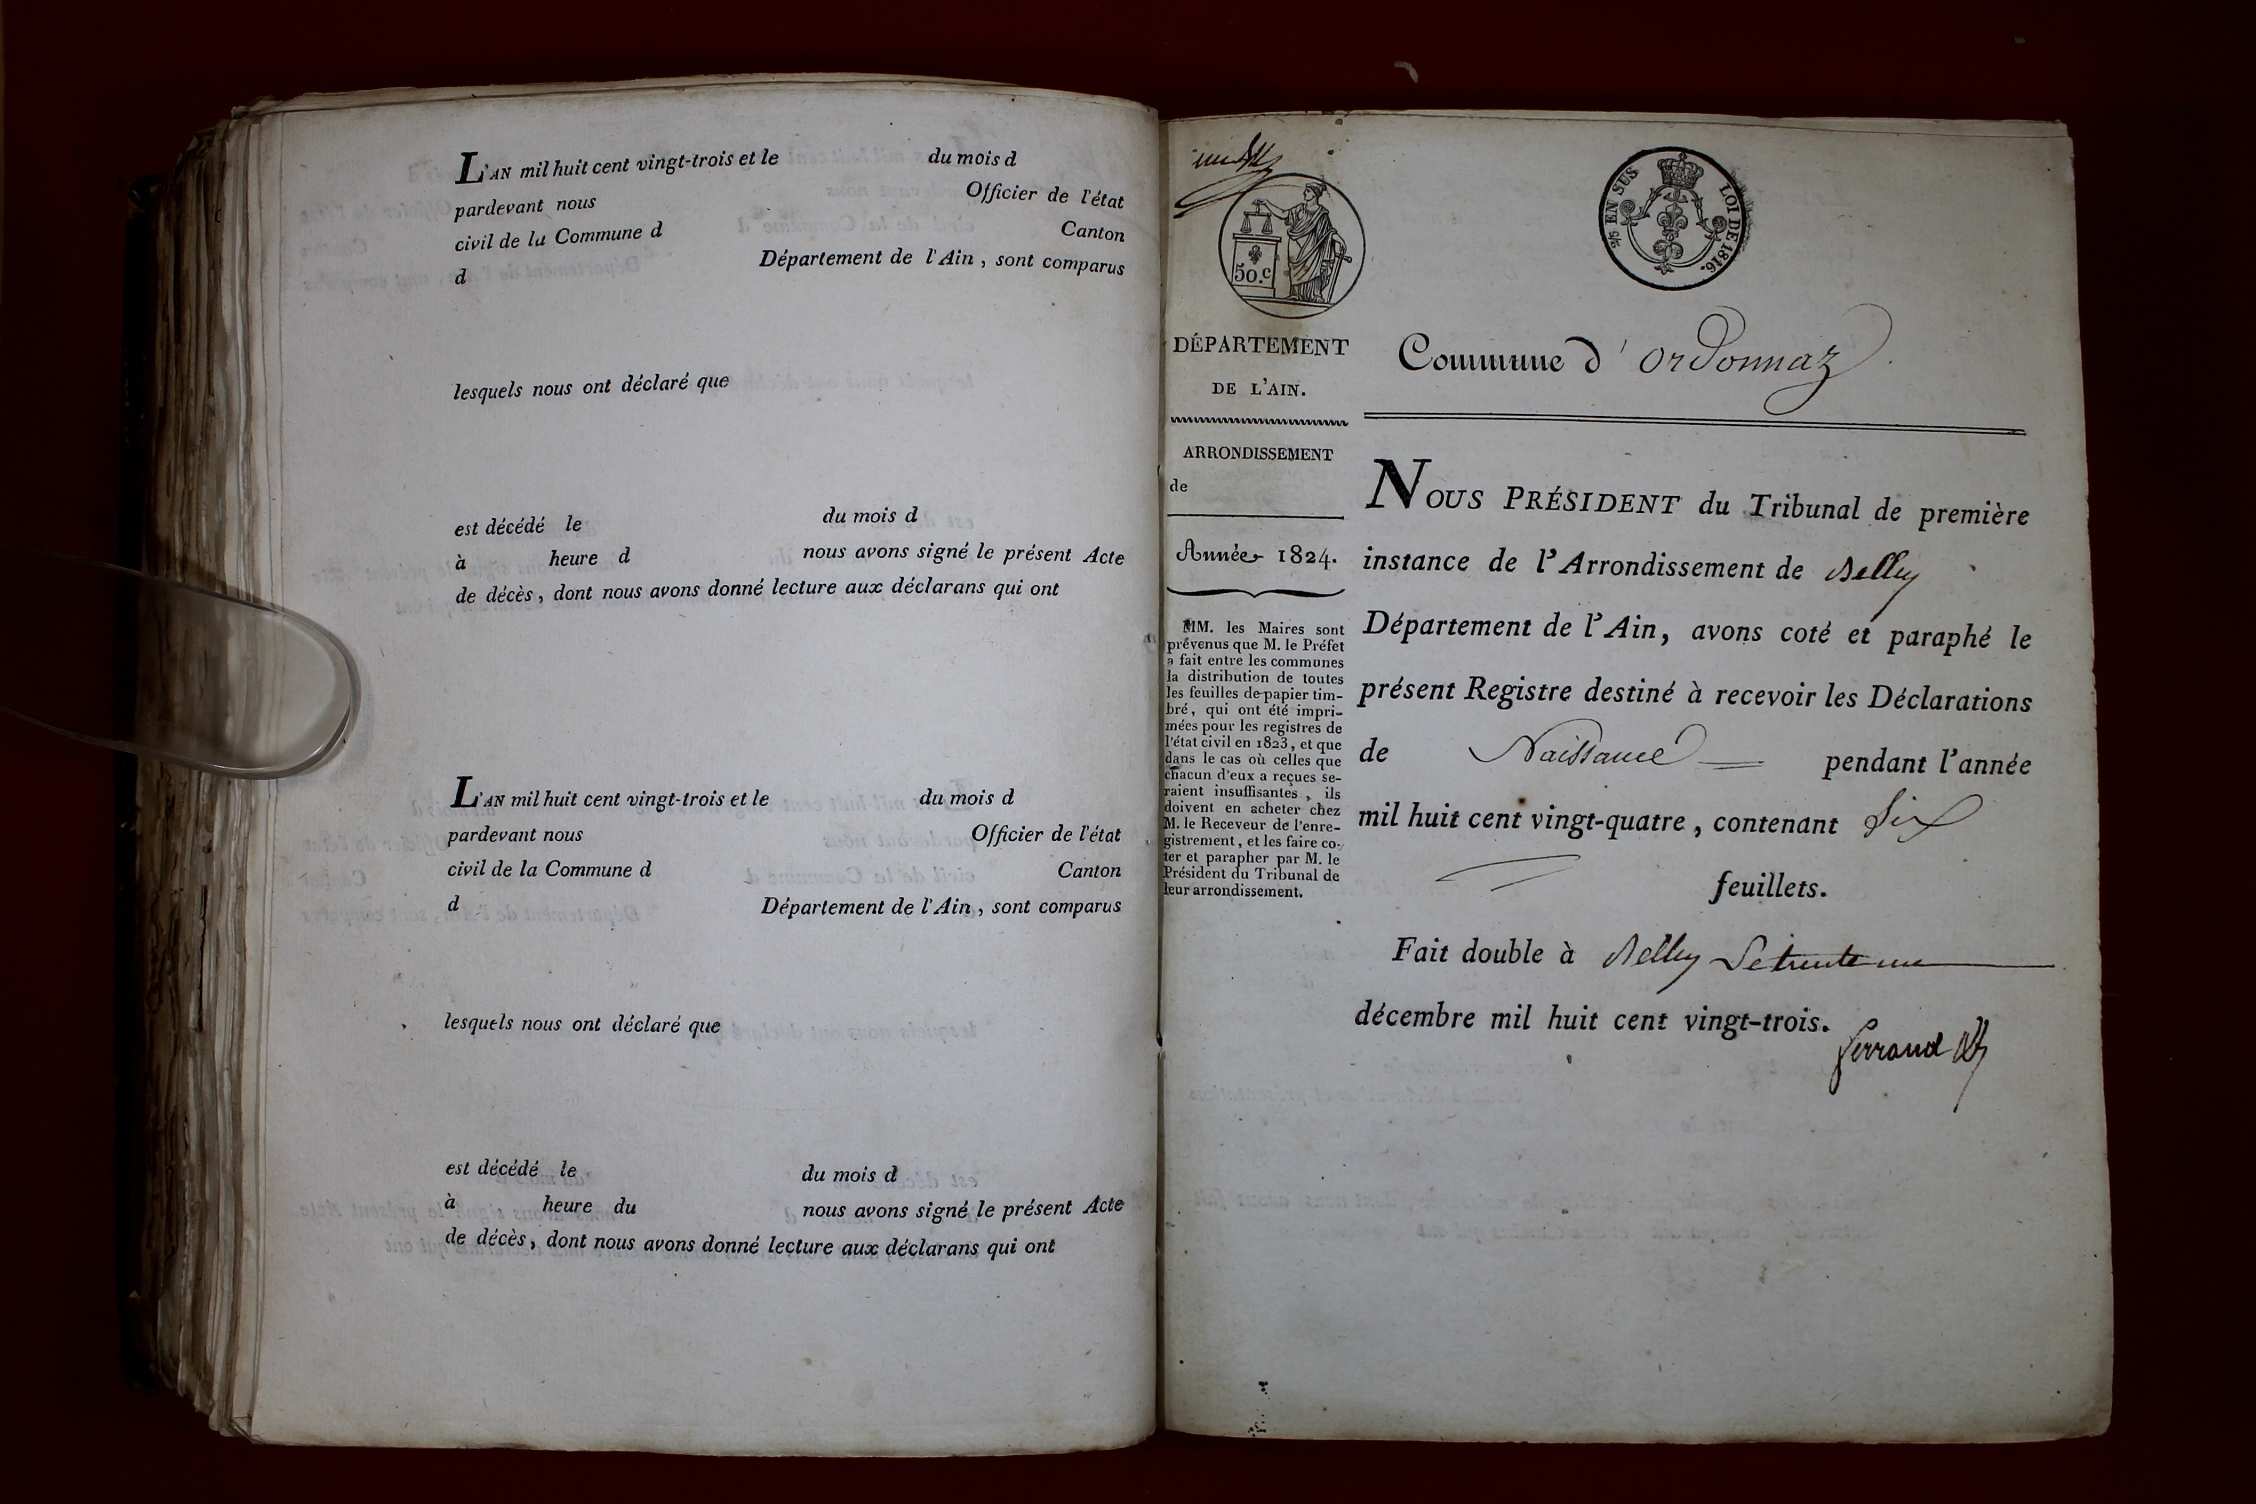 L'AN mil huit cent vingt-trois et le du mois d
pardevant nous Officier de l'état
civil de la Commune d Canton
d Département de l'Ain, sont comparus
lesquels nous ont déclaré que
est décédé le du mois d
à heure d nous avons signé le présent Acte
de décès, dont nous avons donné lecture aux déclarans qui ont
L'AN mil huit cent vingt-trois et le du mois d
pardevant nous Officier de l'état
civil de la Commune d Canton
d Département de l'Ain, sont comparus
lesquels nous ont déclaré que
est décédé le du mois d
à heure du nous avons signé le présent Acte
de décès, dont nous avons donné lecture aux déclarans qui ont
50.c
EN SUS LOI DE 1816.
DÉPARTEMENT
DE L'AIN.
ARRONDISSEMENT
de
Année 1824.
MM. les Maires sont
prévenus que M. le Préfet
a fait entre les communes
la distribution de toutes
les feuilles de papier tim-
bré, qui ont été impri-
mées pour les registres de
l'état civil en 1823, et que
dans le cas où celles que
chacun d'eux a reçues se-
raient insuffisantes, ils
doivent en acheter chez
M. le Receveur de l'enre-
gistrement, et les faire co-
ter et parapher par M. le
Président du Tribunal de
leur arrondissement.
Commune d'ordonnaz
NOUS PRÉSIDENT du Tribunal de première
instance de l'Arrondissement de Belley
Département de l'Ain, avons coté et paraphé le
présent Registre destiné à recevoir les Déclarations
de Naissance pendant l'année
mil huit cent vingt-quatre, contenant Six
feuillets.
Fait double à Belley Le trente un
décembre mil huit cent vingt-trois.
ferrand